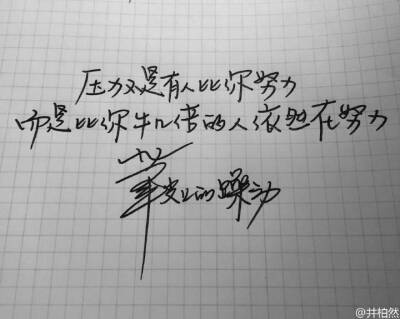 压力不是有人比你努力
而是比你牛几倍的人依然在努力
毕业的躁动
@井柏然